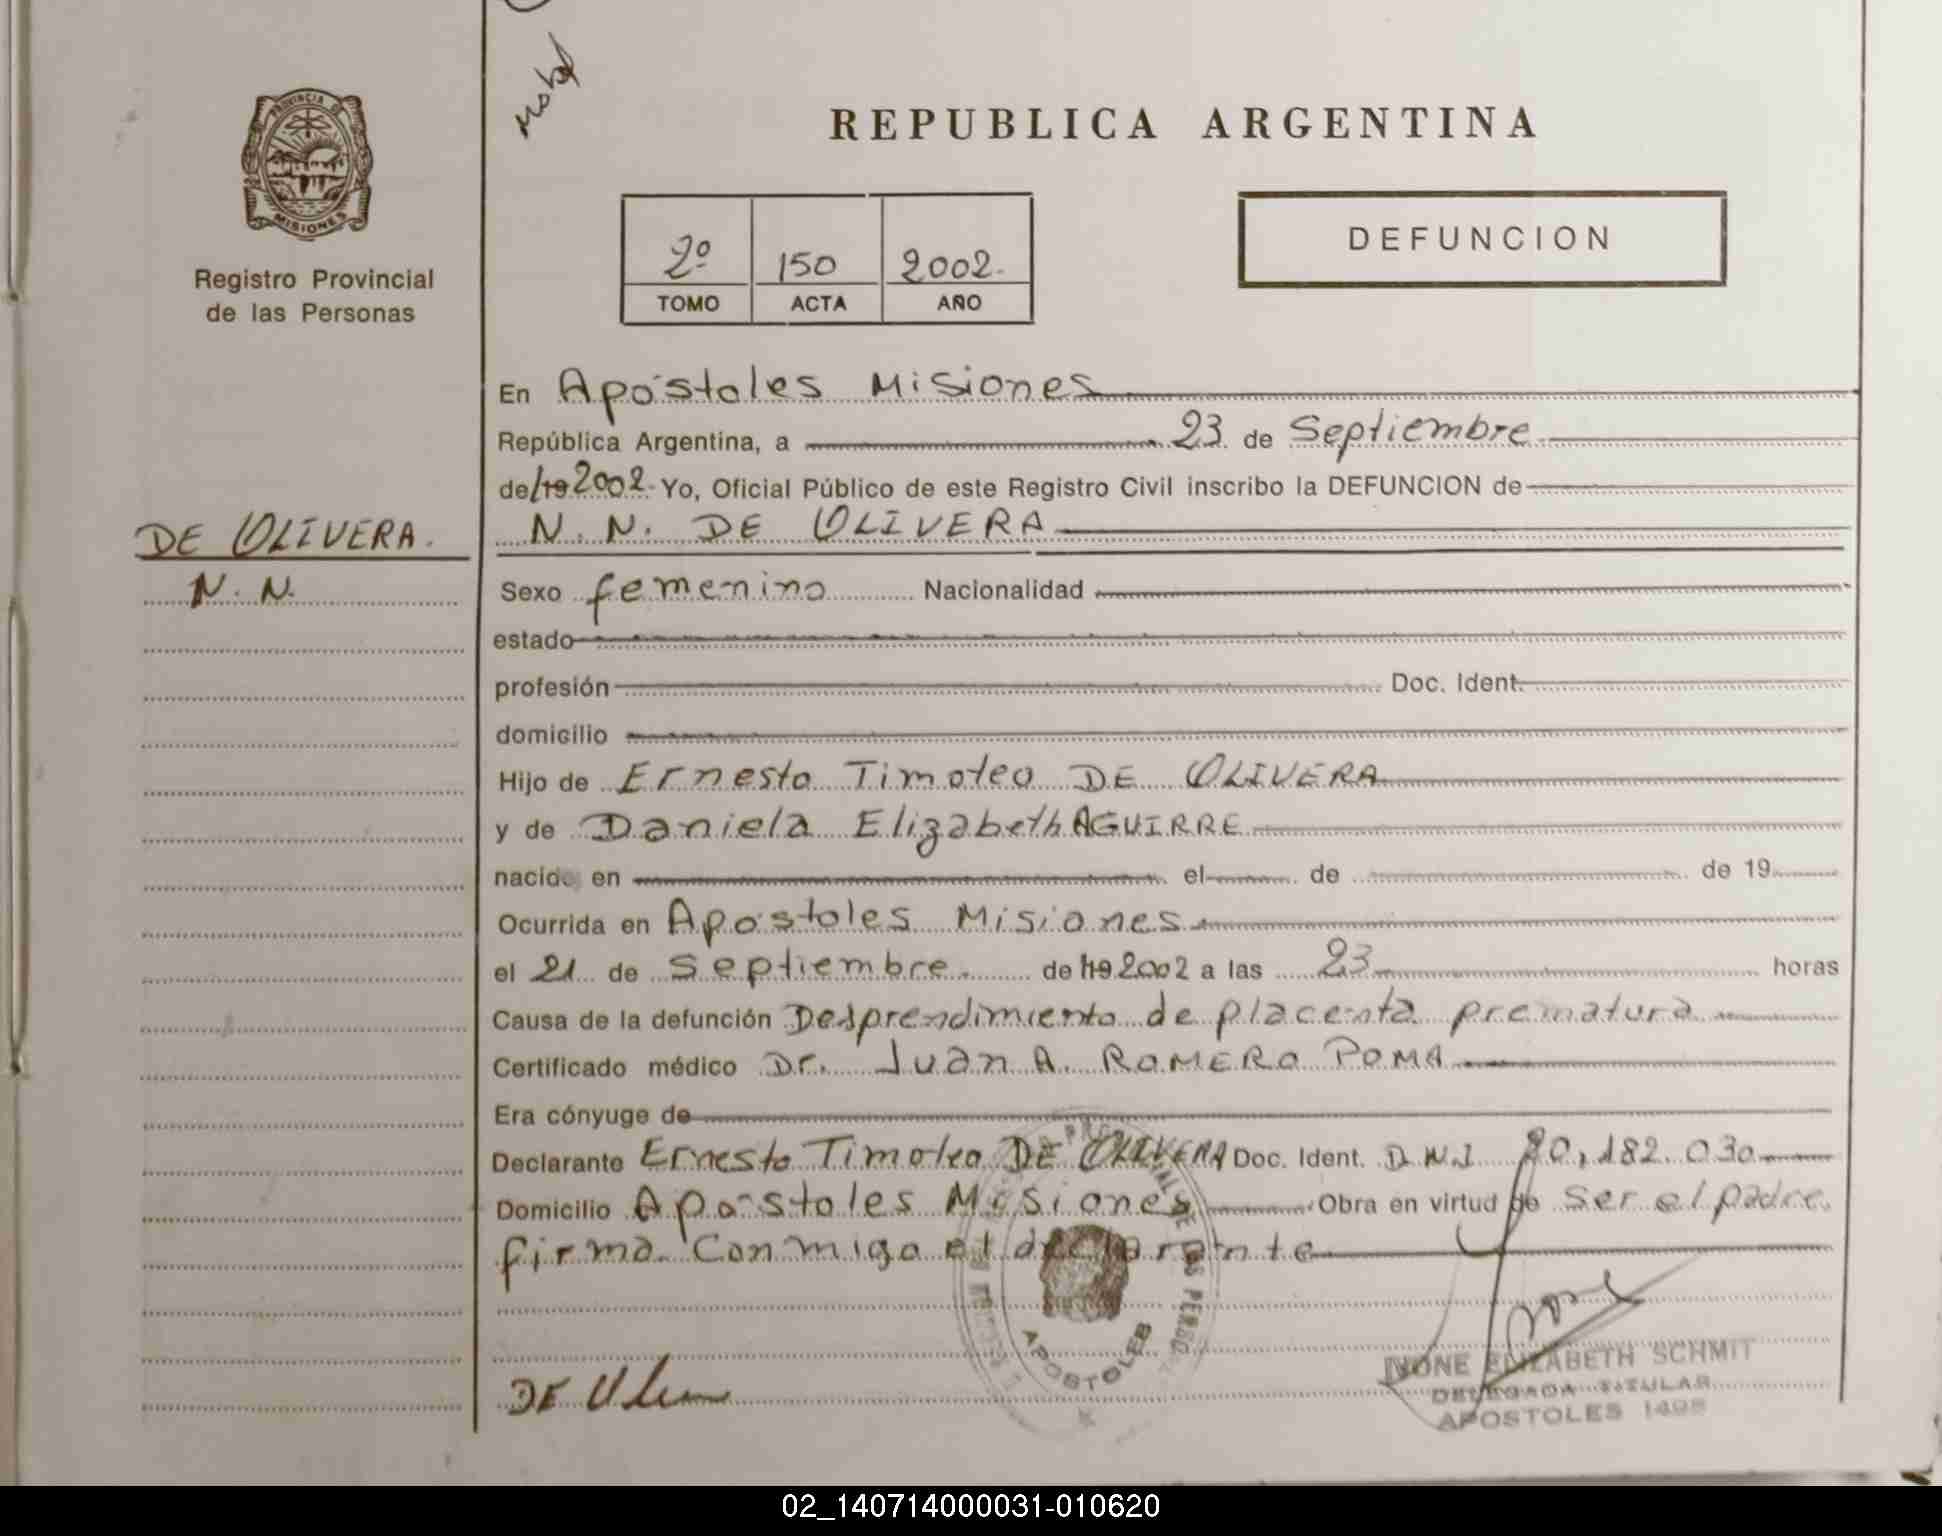 PROVINCIA DE
MISIONES
Registro Provincial
de las Personas
DE OLIVERA.
N. N.
REPUBLICA ARGENTINA
2º 150 2002.
TOMO ACTA AÑO
DEFUNCION
En Apóstoles Misiones
República Argentina, a 23 de Septiembre
de/19 2002. Yo, Oficial Público de este Registro Civil inscribo la DEFUNCION de
N. N. DE OLIVERA
Sexo femenino Nacionalidad
estado
profesión Doc. Ident.
domicilio
Hijo de Ernesto Timoteo DE OLIVERA
y de Daniela Elizabeth AGUIRRE
nacido en el de de 19
Ocurrida en Apóstoles Misiones
el 21 de Septiembre de 19 2002 a las 23 horas
Causa de la defunción Desprendimiento de placenta prematura
Certificado médico Dr. Juan A. ROMERO POMA
Era cónyuge de
Declarante Ernesto Timoteo DE OLIVERA Doc. Ident. D.N.I 20.182.030
Domicilio Apóstoles Misiones Obra en virtud de ser el padre.
firma conmigo el declarante
APOSTOLES
DE
IVONE ELIZABETH SCHMIT
DELEGADA TITULAR
APOSTOLES 1495
02_140714000031-010620